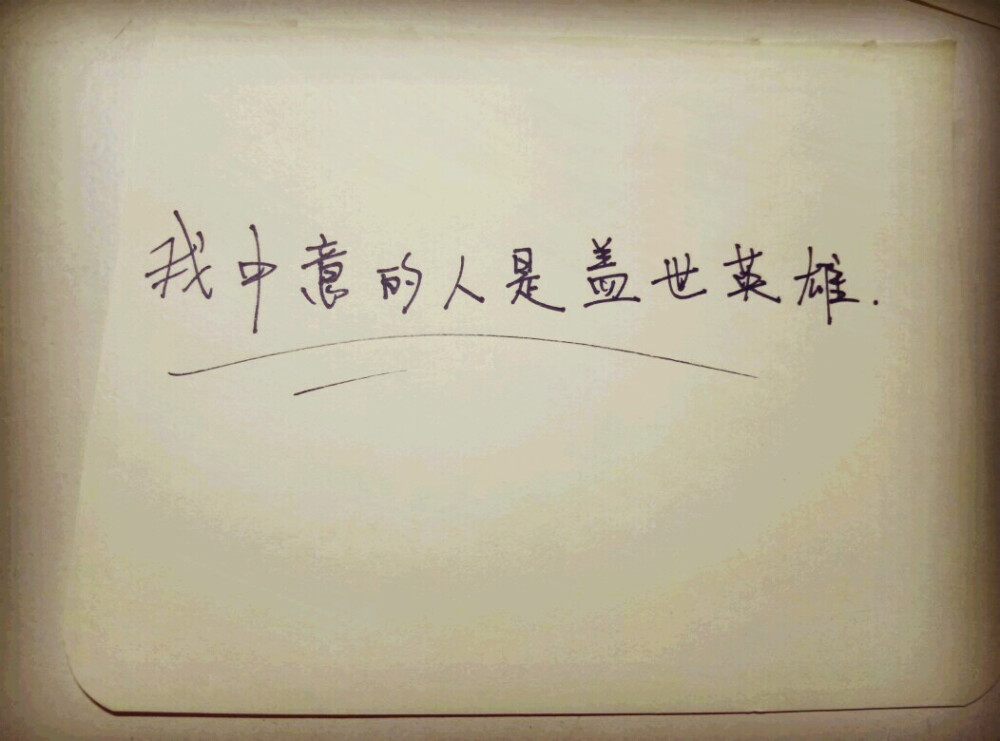 我中意的人是盖世英雄.